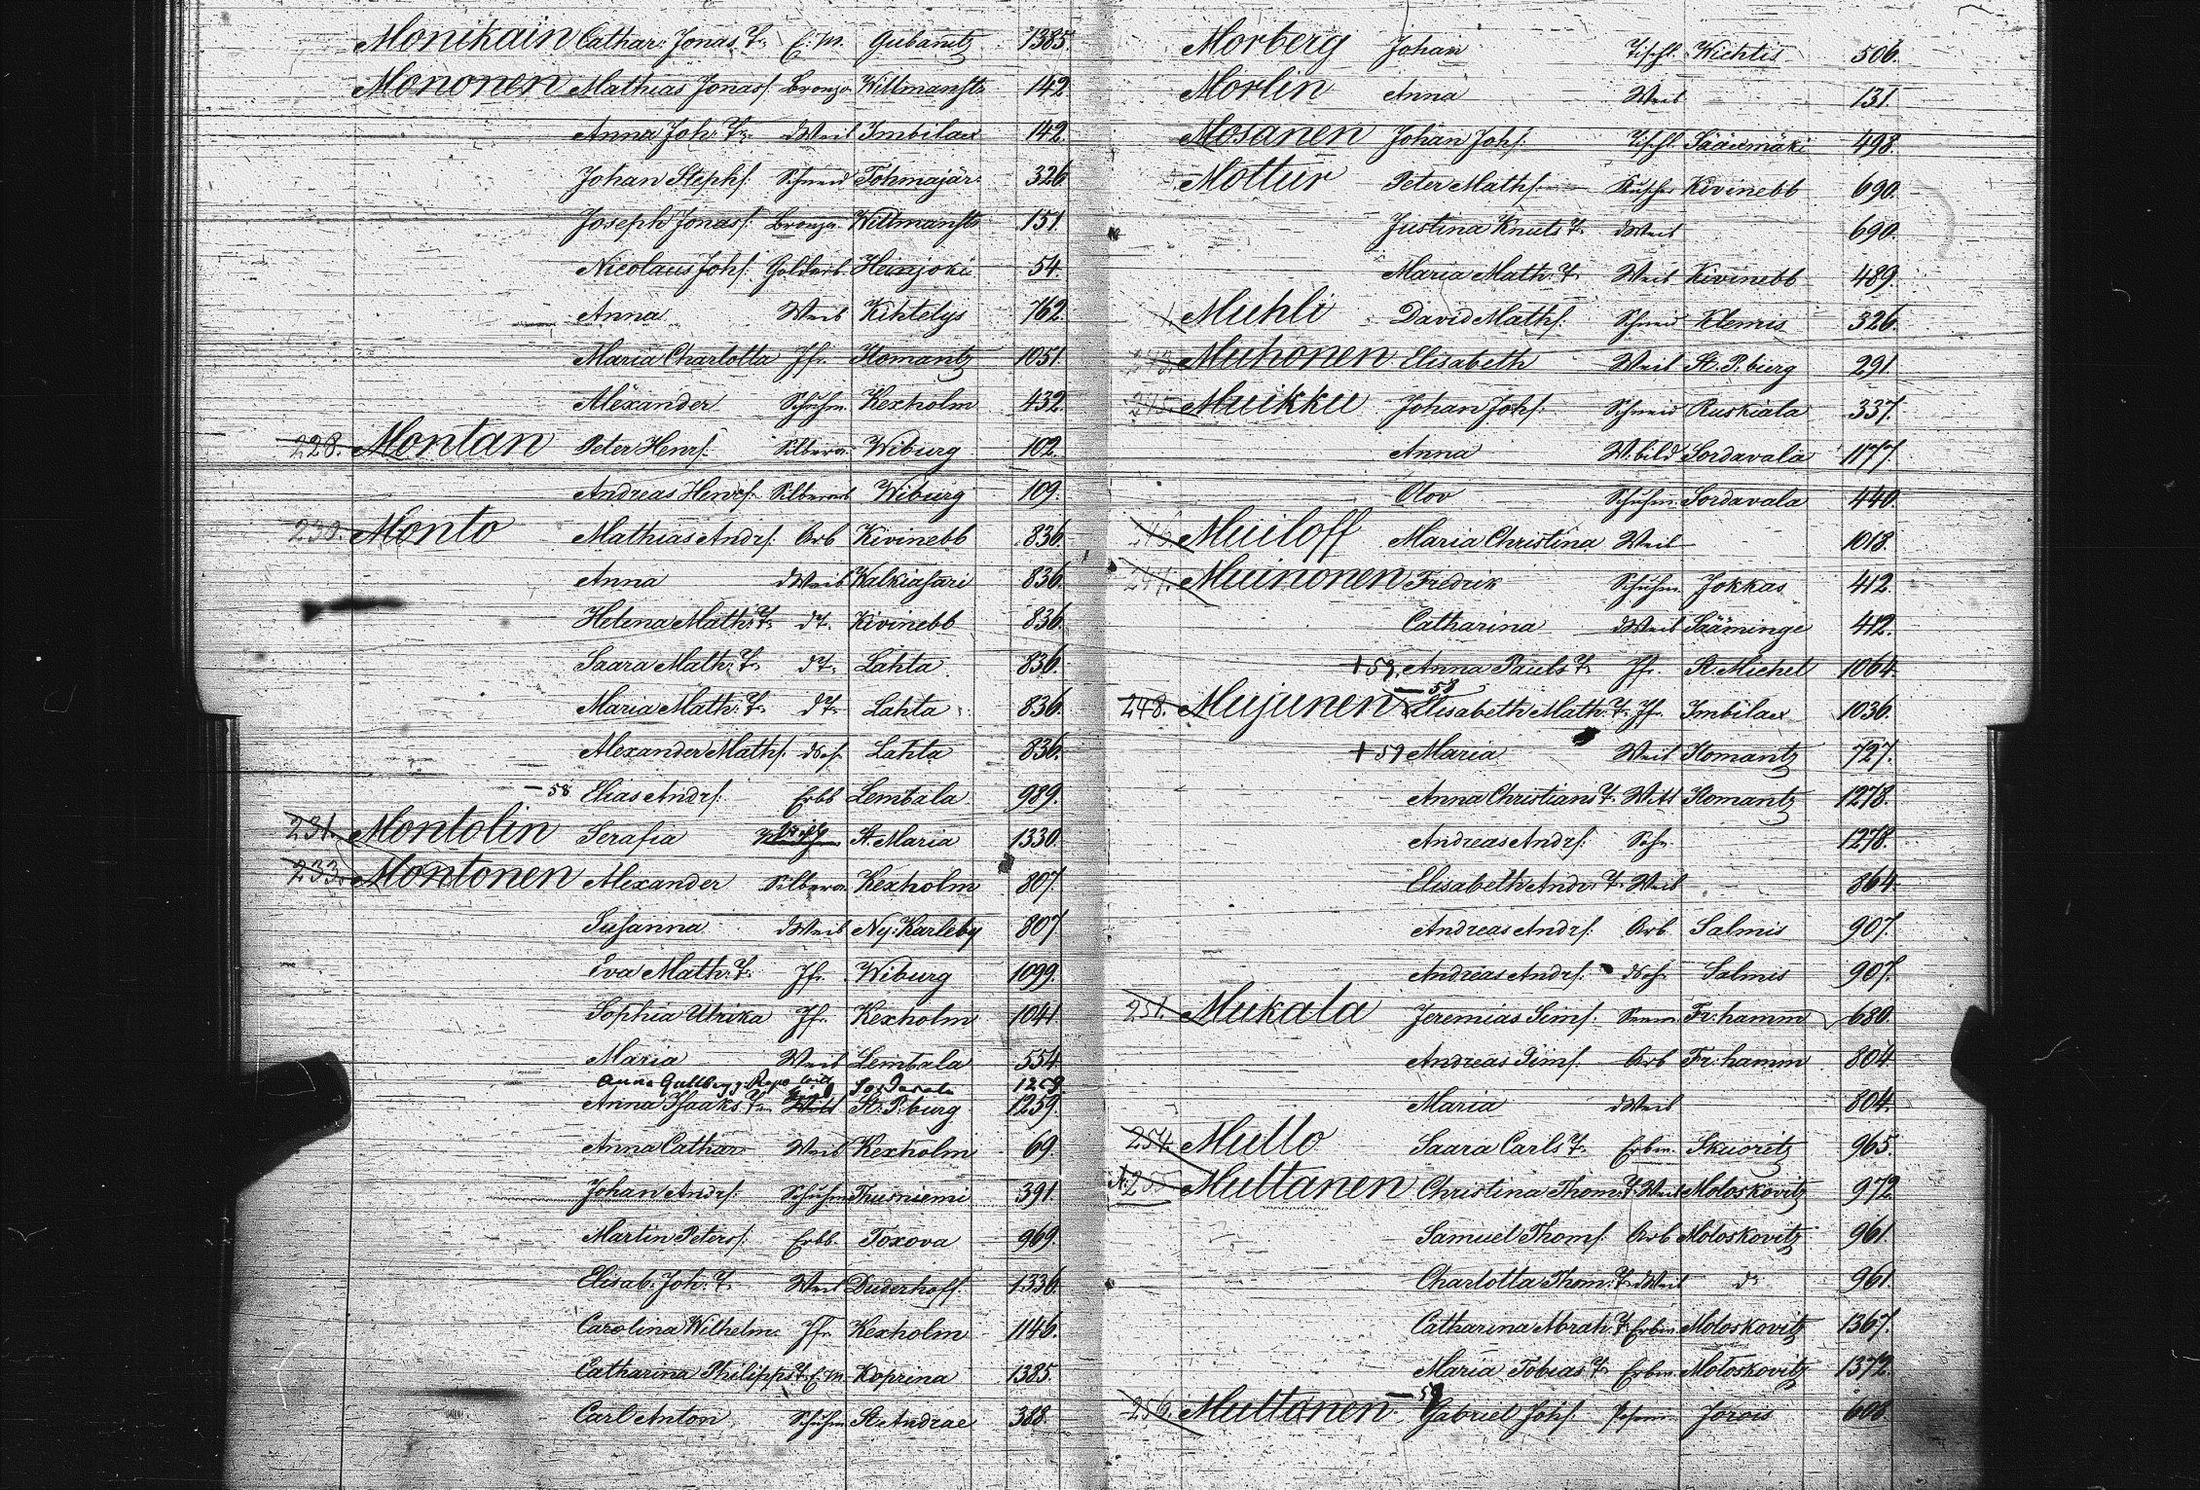 Monikain Cathar: Jonas T. E. M. Gubanitz 1385.
Mononen Mathias Jonass. Bronza. Willmanstr. 142.
Anna Joh. T. d Weib Imbilax 142.
Johan Stephs. Schneid Tohmajär. 326.
Joseph Jonass. Bronza. Willmanstr. 151.
Nicolaus Johs. Goldarb. Heinjoki 54.
Anna Weib Kihtelys 762.
Maria Charlotta Jfr. Ilomantz 1051.
Alexander Schuhm. Kexholm 432.
228. Montan Peter Henrs. Silbera. Wiburg 102.
Andreas Henrs. Silberarb Wiburg 109.
230. Monto Mathias Andrs. Arb Kivinebb 836.
Anna d Weib Walkiasari 836.
Helena Math. T. d T. Kivinebb 836.
Saara Math. T. d T. Lahta 836.
Maria Math. T. d T. Lahta 836.
Alexander Maths. d Sohn Lahta 836.
– 58 Elias Andrs. Erbb Lembala 989.
231. Montolin Serafia St. Maria 1330.
233. Montonen Alexander Silbera. Kexholm 807.
Susanna d Weib Ny. Karleby 807
Eva Math. T. Jfr. Wiburg 1099.
Sophia Ulrika Jf. Kexholm 1041
Maria Weib Lembala 554.
Anna Sordavala 1259.
Anna Isaaks T. St. P. burg 1259.
Anna Cathar. Weib Kexholm 69.
Johan Andrs. Schuhm Thusniemi 391.
Martin Peters. Erbb. Toxova 969.
Elisab. Joh. T. Weib Duderhoff. 1336.
Carolina Wilhelm. Jfr. Kexholm 1146.
Catharina Philipps T. E. M. Koprina 1385.
Carl Anton Schuhm St. Andrae 388.
Morberg Johan Tischl. Wichtis 506.
Morlin Anna Weib 131.
Mosanen Johan Johs. Tischl. Sääxmäki 498.
Mottur Peter Maths. Kutscher Kivinebb 690.
Justina Knuts T. d Weib 690.
Maria Math. T. Weib Kivinebb 489.
Muhli David Maths. Schneid Klemis 326.
243. Muhonen Elisabeth Weib St. P. burg 291.
245. Muikku Johan Johs. Schneid Ruskiala 337.
Anna W. bild Sordavala 1177.
Olov Schuhm. Sordavala 440.
246. Muiloff Maria Christina Weib 1018.
247. Muinonen Fredrik Schuhm. Jokkas 412.
Catharina d Weib Sääminge 412.
+ 59. Anna Pauls T. Jfr. St. Michel 1064.
– 58
248. Mujunen Elisabeth Math. T. Jf. Imbilax 1036.
+ 59 Maria Weib Ilomantz 727.
Anna Christians T. Witt Ilomantz 1278.
Andreas Andrs. Sohn 1278.
Elisabeth Andr. T. Weib 864.
Andreas Andrs. Arb. Salmis 907.
Andreas Andrs. d Sohn Salmis 907.
251. Mukala Jeremias Sims. Seem. Fr: hamm 680.
Andreas Sims. Arb Fr: hamm 804.
Maria d Weib 804.
254. Mullo Saara Carls T. Erbm. Skuoritz 965.
A. 255. Multanen Christina Thom. T. Weib Moloskovitz 972.
Samuel Thoms. Arb Moloskovitz 961.
Charlotta Thom. T. d Weib d. 961.
Catharina Abrah. T. Erbm. Moloskovitz 1367.
Maria Tobias T. Erbm. Moloskovitz 1372.
– 58
256. Multanen Gabriel Johs. Jorois 608.